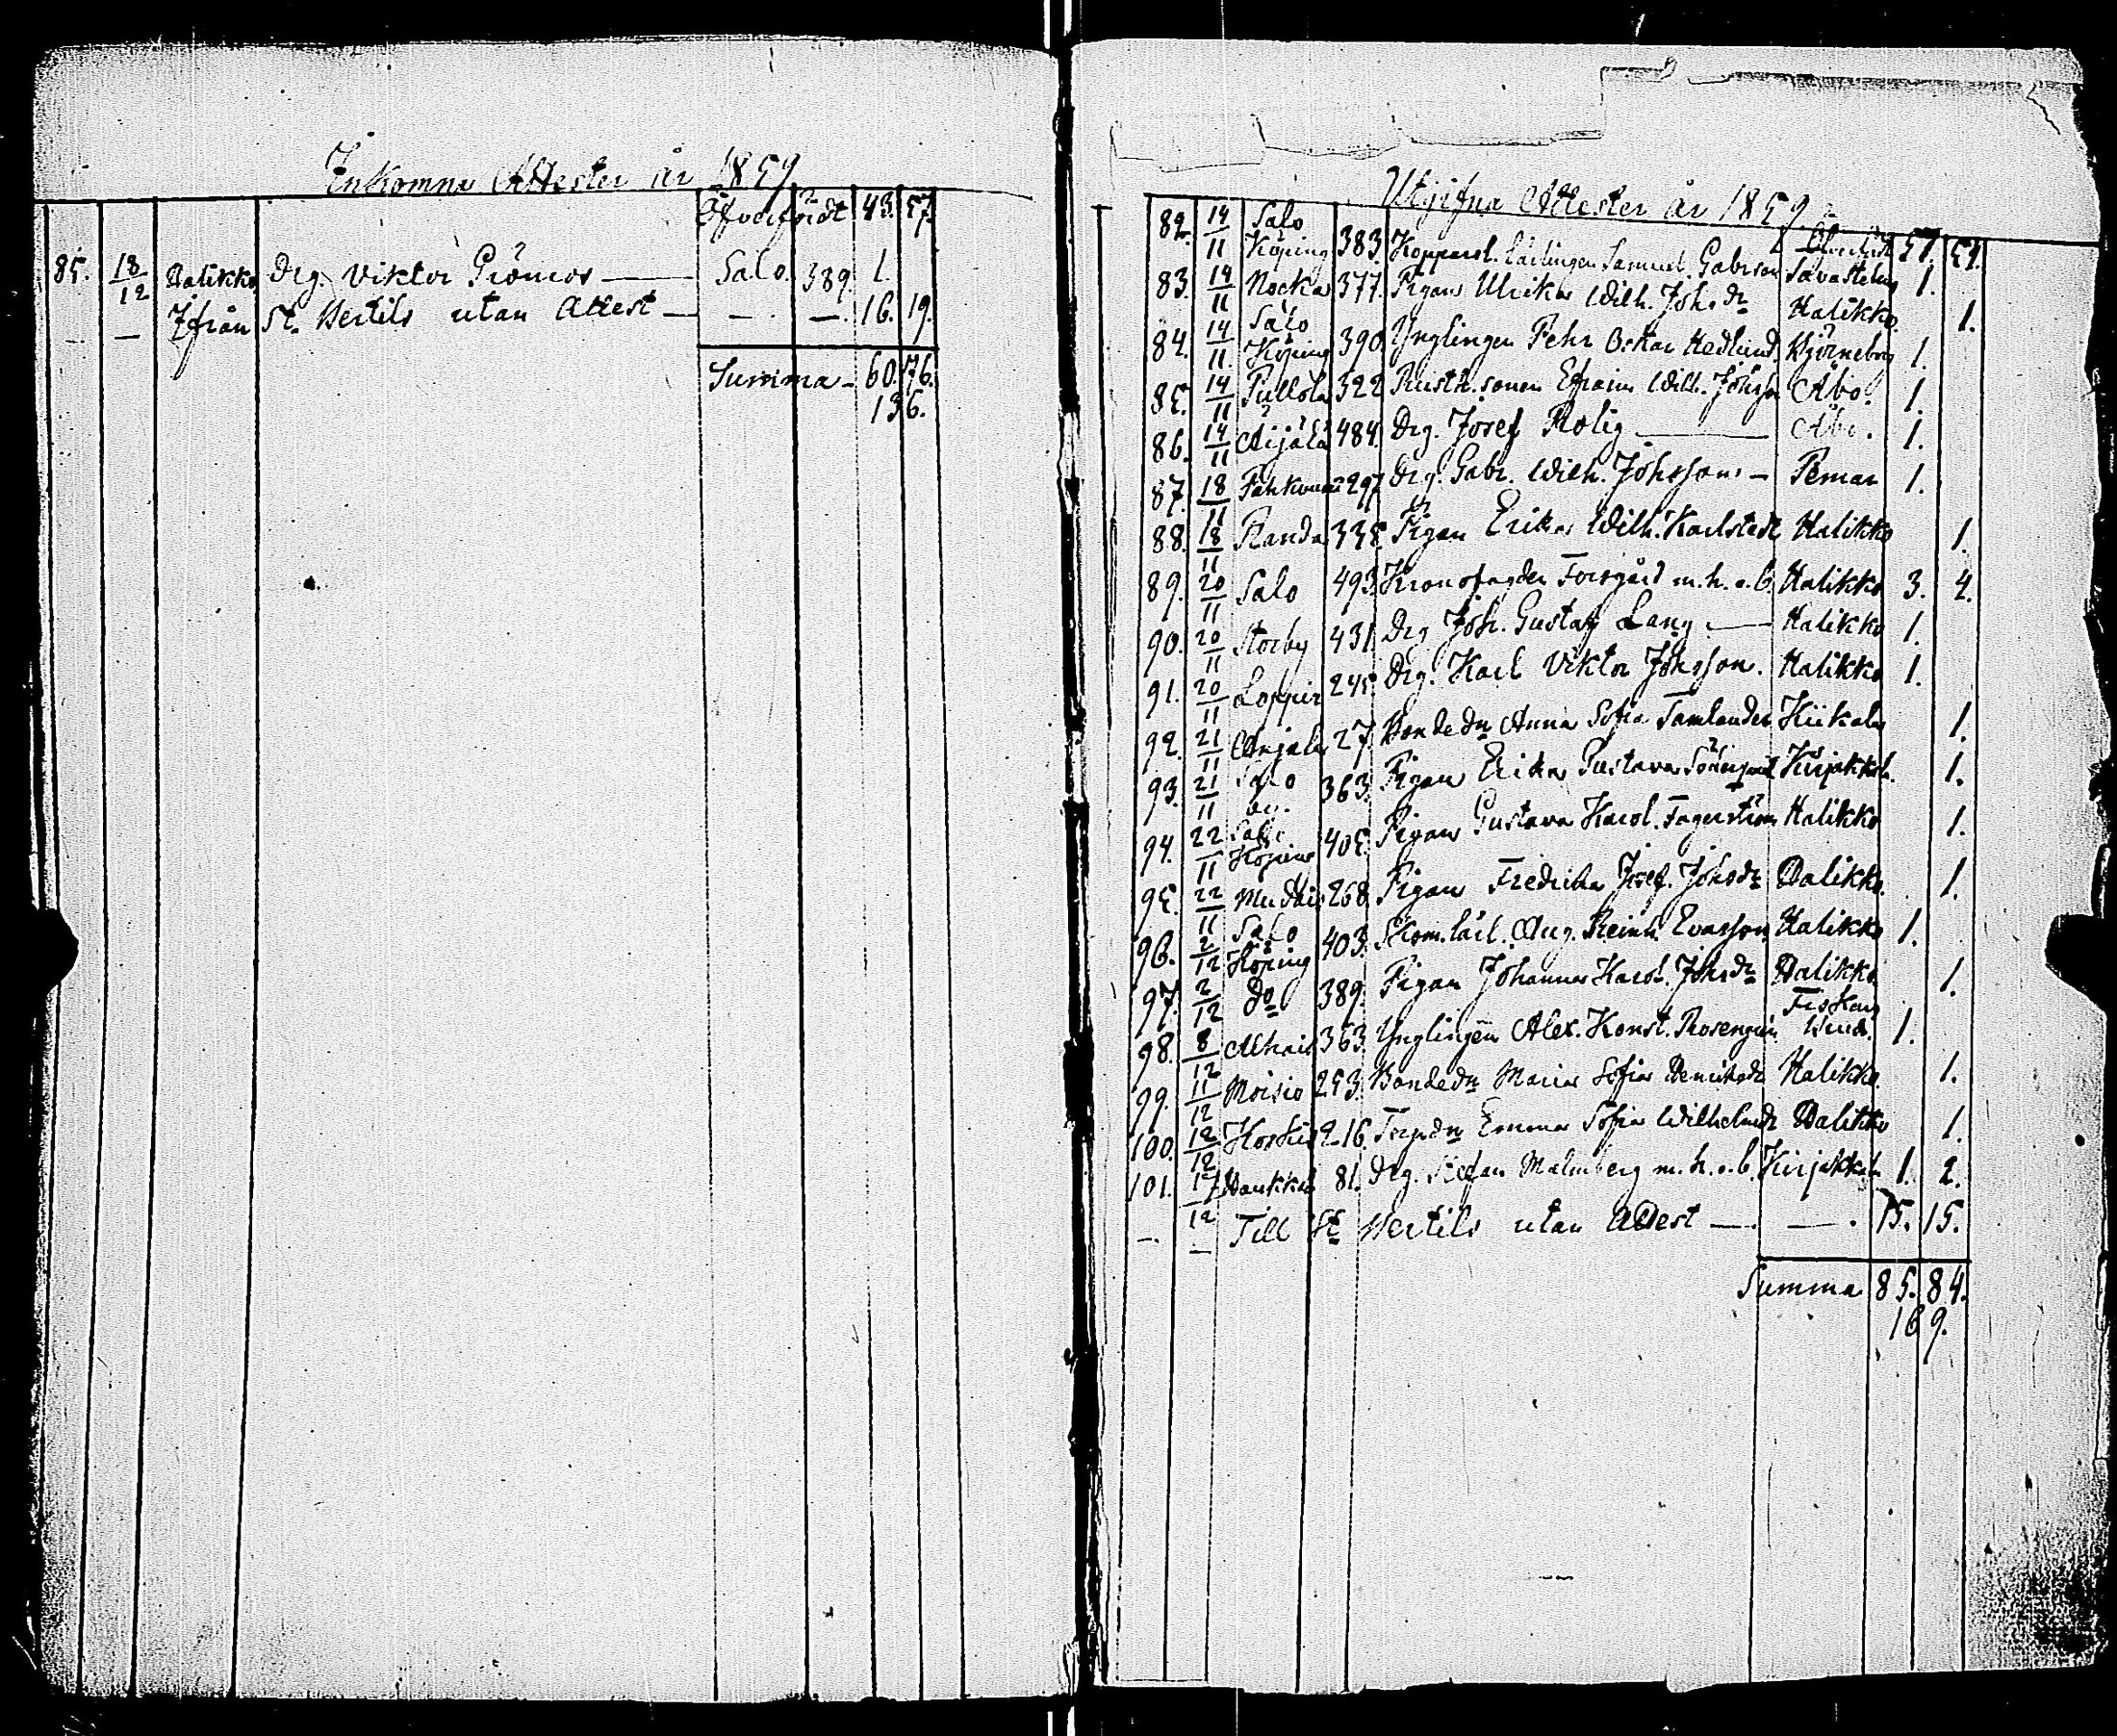 Inkomna Attester år 1859
Öfverfördt 43. 57.
85. 18/12 Halikko Drg Viktor Grönroos — Salo. 389. 1.
— Ifrån St. Bertils utan Attest — — — 16. 19.
Summa - 60. 76.
136.
Utgifna Attester år 1859
82. 14/11 Salo Köping 383. Kopparsl. Lärlingen Samuel Gabrson Tavastehus 1.
83. 14/11 377. Pigan Ulrika Wilh. Johsdr Halikko 1.
84. 14/11 Salo Köping 390. Ynglingen Pehr Oskar Hedlund Björneborg 1.
85. 14/11 Pullola 322 Rusth. sonen Efraim Wilh. Johsson Åbo. 1.
86. 14/11 Aijälä 484. Drg. Josef Rolig — Åbo. 1.
87. 18/11 297 Drg. Gabr. Wilh. Johsson - Pemar 1.
88. 18/11 338. Pigan Erika Wilh. Karlstedt Halikko 1.
89. 20/11 Salo 493. Kronofogden Forsgård m. h. o. b. Halikko 3. 4.
90. 20/11 Storby 431. Drg Joh. Gustaf Lang — Halikko 1.
91. 20/11 245. Drg. Karl Viktor Johsson. Halikko 1.
92. 21/11 Anjala 27. Bondedn Anna Sofia Tamlander Kiikala 1.
93. 21/11 Salo by. 363. Pigan Erika Gustava Kirjakkala. 1.
94. 22/11 Salo Köping 405. Pigan Gustava Karol. Fagerström Halikko 1.
95. 22/11 268. Pigan Fredrika Josef. Johsdr Halikko. 1.
96. 2/12 Salo Köping 403. Skom. lärl. Aug. Reinh. Evasson Halikko 1.
97. 2/12 Do 389. Pigan Johanna Karol. Johsdr Halikko 1.
98. 8/12 363. Ynglingen Alex. Konst. Rosengrén Fiskars bruk. 1.
99. 11/12 Moisio 253. Bondedn Maria Sofia Halikko. 1.
100. 12/12 216. Torpdn Emma Sofia Wilhelmsdr Halikko 1.
101. 17/12 81. Drg. Stefan Malmberg m. h. o. b. Kirjakkala 1. 2.
— — Till St Bertils utan Attest — — . 15. 15.
Summa 85. 84.
169.